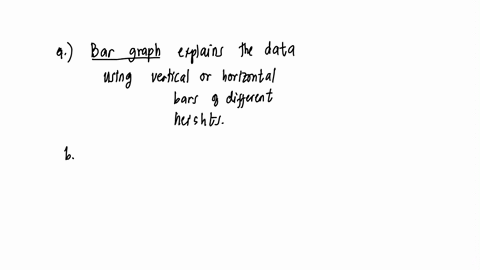 a.) Bar graph explains the data
using vertical or horizontal
bars of different
heights.
b.